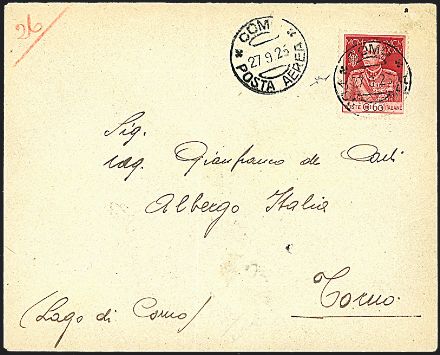 26
COM
POSTA AEREA
27.9.25
COM
60
Sig.
Gianfranco de Carli
Albergo Italia
(Lago di Como)
Torno